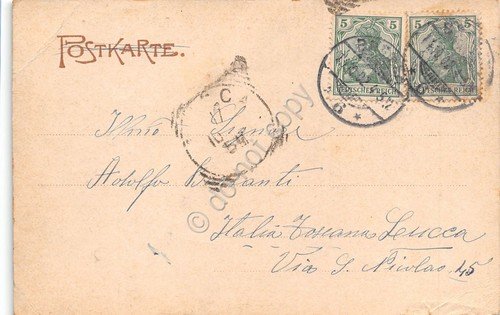 POSTKARTE.
5 5 5 5
DEUTSCHES REICH DEUTSCHES REICH
Illmo Signor
Adolfo
Italia Toscana Lucca
Via S. Nicolao 45
© do not copy